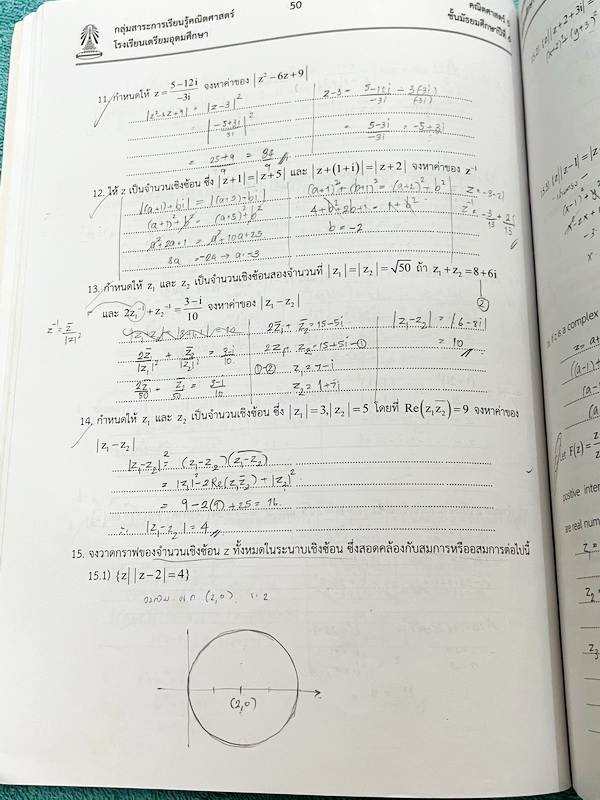 50
กลุ่มสาระการเรียนรู้คณิตศาสตร์
โรงเรียนเตรียมอุดมศึกษา
คณิตศาสตร์ 5
ชั้นมัธยมศึกษาปีที่
11. กำหนดให้ z = (5−12i)/(−3i) จงหาค่าของ |z²−6z+9|
= |z−3|²
= |(−5+3i)/3i|²
= (25+9)/9 = 34/9
z−3 = (5−12i)/(−3i) − 3(−3i)/(−3i)
= (5−3i)/(−3i) = (−5+3i)/3i
12. ให้ z เป็นจำนวนเชิงซ้อน ซึ่ง |z+1| = |z+5| และ |z+(1+i)| = |z+2| จงหาค่าของ z⁻¹
|(a+1)+bi| = |(a+5)+bi|
(a+1)²+b² = (a+5)²+b²
a²+2a+1 = a²+10a+25
8a = −24 → a = −3
(a+1)²+(b+1)² = (a+2)²+b²
4+b²+2b+1 = 1+b²
b = −2
z = −3−2i
z⁻¹ = −3/13 + 2i/13
13. กำหนดให้ z₁ และ z₂ เป็นจำนวนเชิงซ้อนสองจำนวนที่ |z₁| = |z₂| = √50 ถ้า z₁+z₂ = 8+6i
②
และ 2z₁⁻¹+z₂⁻¹ = (3−i)/10 จงหาค่าของ |z₁−z₂|
z⁻¹ = z̄/|z|²
2z̄₁/|z₁|² + z̄₂/|z₂|² = (3−i)/10
2z̄₁/50 + z̄₂/50 = (3−i)/10
2z̄₁+z̄₂ = 15−5i
2z₁+z₂ = 15+5i −①
①−② z₁ = 7−i
z₂ = 1+7i
|z₁−z₂| = |6−8i|
= 10
14. กำหนดให้ z₁ และ z₂ เป็นจำนวนเชิงซ้อน ซึ่ง |z₁| = 3, |z₂| = 5 โดยที่ Re(z₁z̄₂) = 9 จงหาค่าของ
|z₁−z₂|
|z₁−z₂|² = (z₁−z₂)(z₁−z₂)‾
= |z₁|²−2Re(z₁z̄₂)+|z₂|²
= 9−2(9)+25 = 16
∴ |z₁−z₂| = 4
15. จงวาดกราฟของจำนวนเชิงซ้อน z ทั้งหมดในระนาบเชิงซ้อน ซึ่งสอดคล้องกับสมการหรืออสมการต่อไปนี้
15.1) {z| |z−2| = 4}
(2,0)
(2,0)
is a complex
F(z) =
positive inter
are real num
z₁ =
z₂ =
z₃